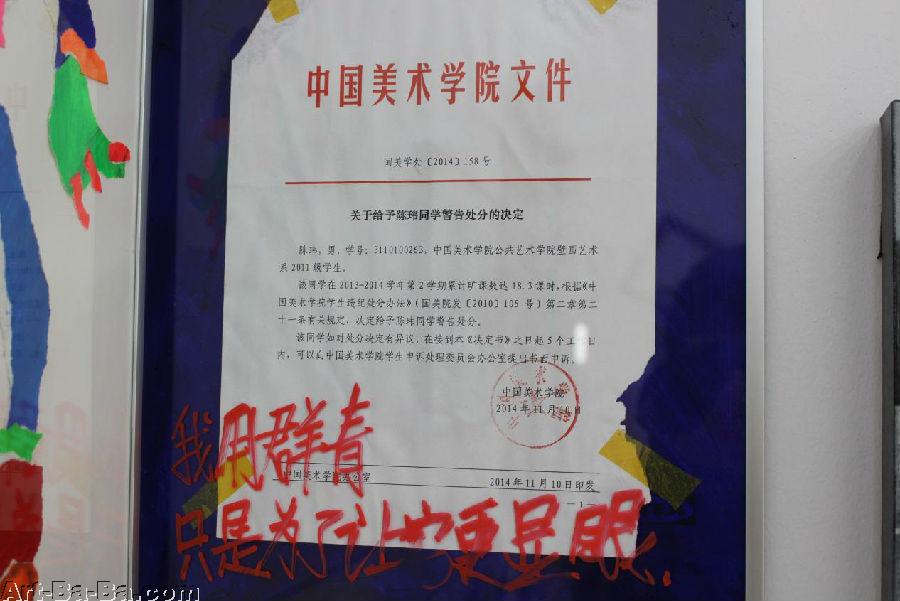 中国美术学院文件
国美学处〔2014〕158号
关于给予陈玮同学警告处分的决定
陈玮，男，学号：3110100263，中国美术学院公共艺术学院壁画艺术
系2011级学生。
该同学在2013-2014学年第2学期累计旷课数达18.3课时，根据《中
国美术学院学生违纪处分办法》（国美院发〔2010〕105号）第二章第二
十一条有关规定，决定给予陈玮同学警告处分。
该同学如对处分决定有异议，在接到本《决定书》之日起5个工作日
内，可以向中国美术学院学生申诉处理委员会办公室提出书面申诉。
中国美术学院
2014年11月10日
我用群青
中国美术学院办公室 2014年11月10日印发
—1—
只是为了让它更显眼.
Art-Ba-Ba.com